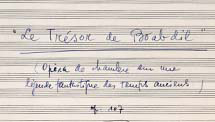 "Le Trésor de Boabdil"
(Opéra de chambre sur une
légende fantastique des temps anciens)
op. 107